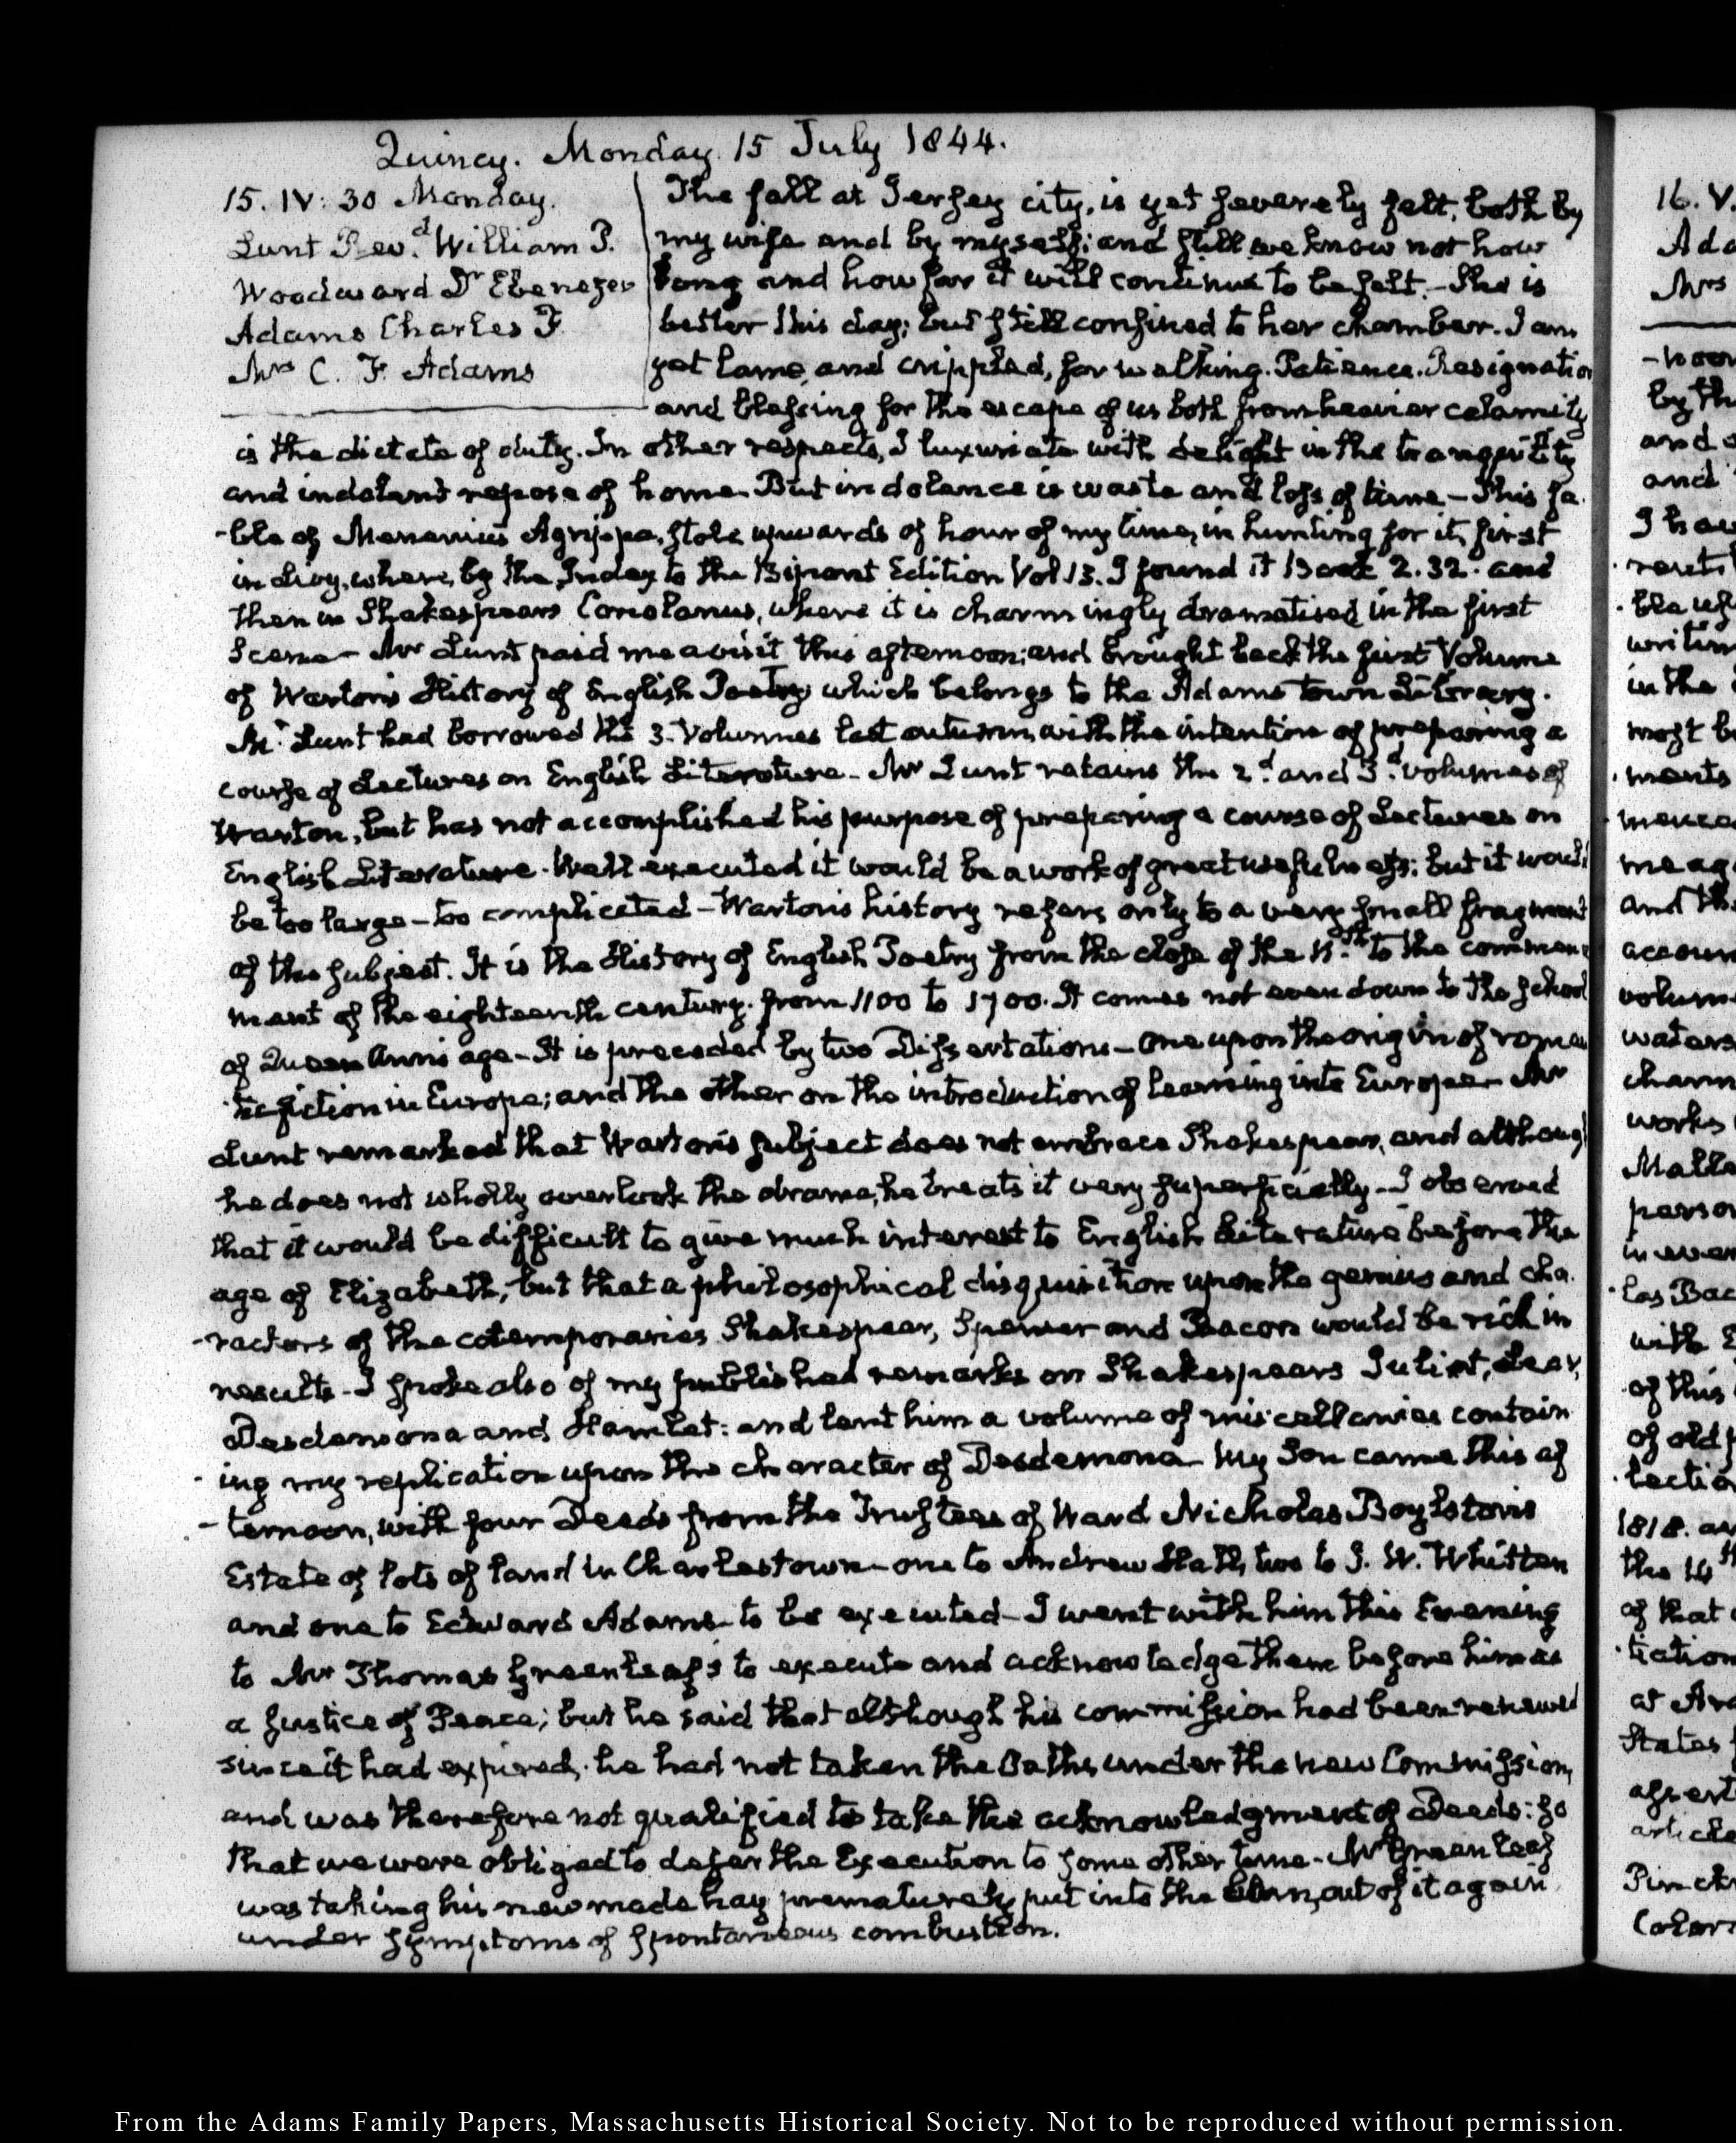 Quincy. Monday 15 July 1844.
15. IV: 30 Monday.
Lunt Revd. William P.
Woodward Dr Ebenezer
Adams Charles F.
Mrs C. F. Adams
The fall at Jersey city, is yet severely felt, both by
my wife and by myself; and still we know not how
long and how far it will continue to be felt. - She is
better this day; but still confined to her chamber. I am
yet lame, and crippled, for walking. Patience. Resignation
and blessing for the escape of us both from heavier calamity
is the dictate of duty. In other respects, I luxuriate with delight in the tranquility
and indolent repose of home. But indolence is waste and loss of time - This fa-
-ble of Menenius Agrippa, stole upwards of hour of my time, in hunting for it, first
in Livy, where, by the Index to the Bipont Edition Vol 13. I found it Book 2.32. and
then in Shakespears Coriolanus, where it is charmingly dramatised in the first
Scene - Mr Lunt paid me a visit this afternoon; and brought back the first Volume
of Warton's History of English Poetry which belongs to the Adams Town Library.
Mr Lunt had borrowed the 3. Volumes last autumn, with the intention of preparing a
course of Lectures on English Literature - Mr Lunt retains the 2d. and 3d. volumes of
Warton, but has not accomplished his purpose of preparing a course of Lectures on
English Literature. Well executed it would be a work of great usefulness; but it would
be too large - too complicated - Warton's history refers only to a very small fragment
of the subject. It is the History of English Poetry from the close of the 11th. to the commence
ment of the eighteenth century. from 1100 to 1700. It comes not even down to the school
of Queen Ann's age - It is preceded by two Dissertations - One upon the origin of roman
tic fiction in Europe; and the other on the introduction of learning into Europe - Mr
Lunt remarked that Warton's subject does not embrace Shakespear, and although
he does not wholly overlook the drama, he treats it very superficially - I observed
that it would be difficult to give much interest to English Literature before the
age of Elizabeth, but that a philosophical disquisition upon the genius and cha-
-racters of the cotemporaries Shakespear, Spenser and Bacon would be rich in
results - I spoke also of my published remarks on Shakespears Juliet, Lear,
Desdemona and Hamlet: and lent him a volume of miscellanies contain
-ing my replication upon the character of Desdemona - My Son came this af
-ternoon, with four Deeds from the Trustees of Ward Nicholas Boylston's
Estate of lots of land in Charlestown - one to Andrew Hall, two to J. W. Whitten
and one to Edward Adams - to be executed - I went with him this Evening
to Mr Thomas Greenleaf's to execute and acknowledge them before him as
a Justice of Peace; but he said that although his commission had been renewed
since it had expired, he had not taken the Oaths under the new Commission,
and was therefore not qualified to take the acknowledgment of Deeds: so
that we were obliged to defer the Execution to some other time - Mr Greenleaf
was taking his new made hay prematurely put into the barn, out of it again
under symptoms of spontaneous combustion.
From the Adams Family Papers, Massachusetts Historical Society. Not to be reproduced without permission.